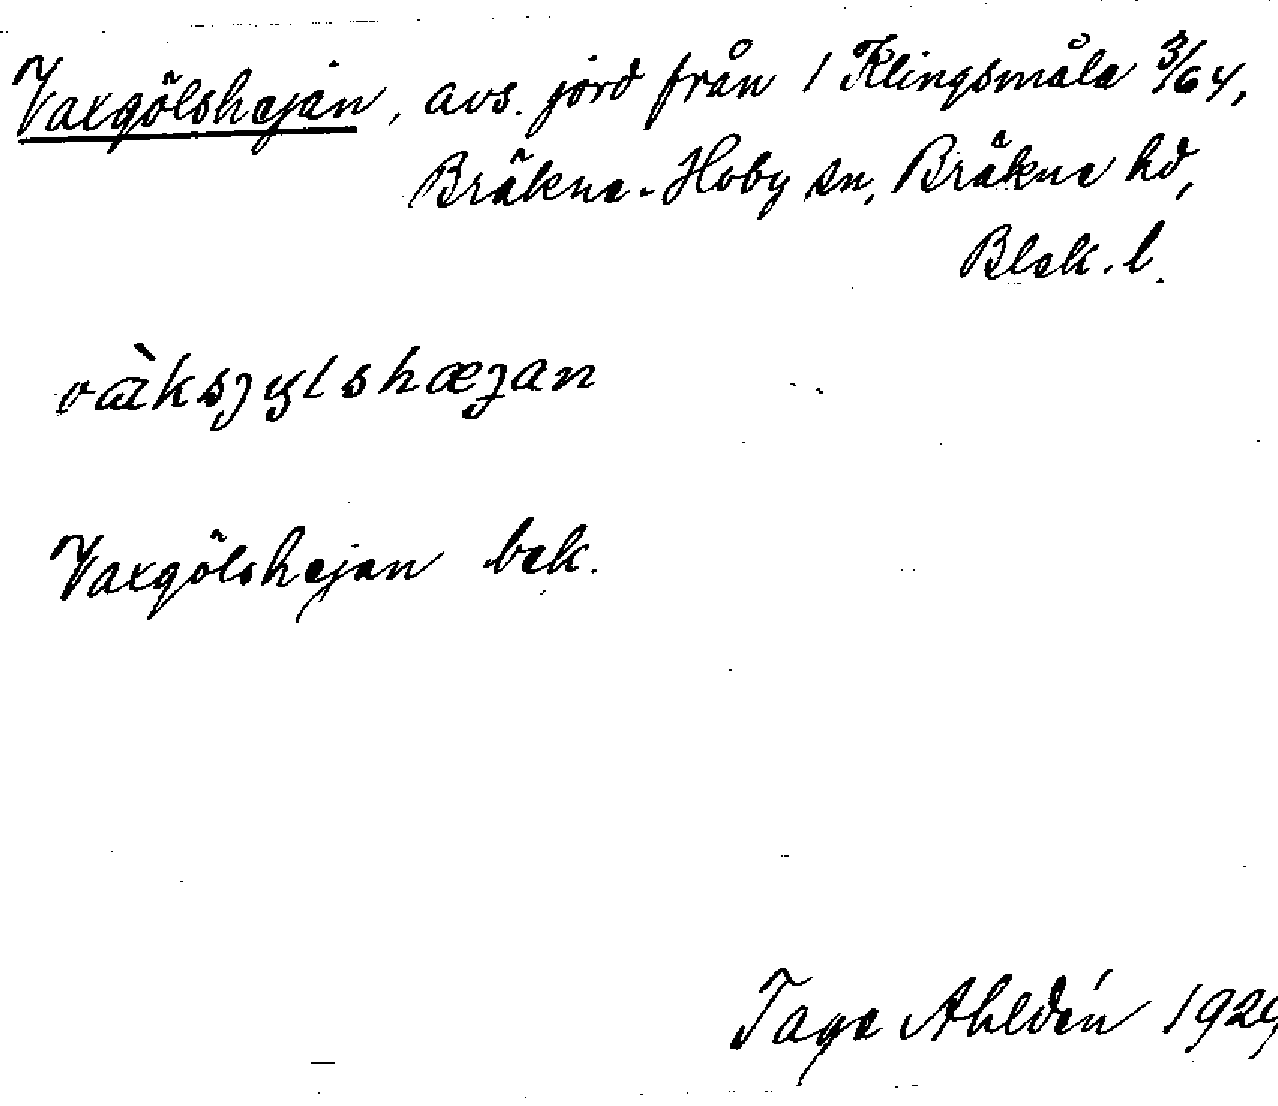 Vaxgölshejan, avs. jord från 1 Klingsmåla 3/64,
Bräkne-Hoby sn, Bräkne hd,
Blek. l.
Vaxgölshejan bek.
Tage Ahldén 1929